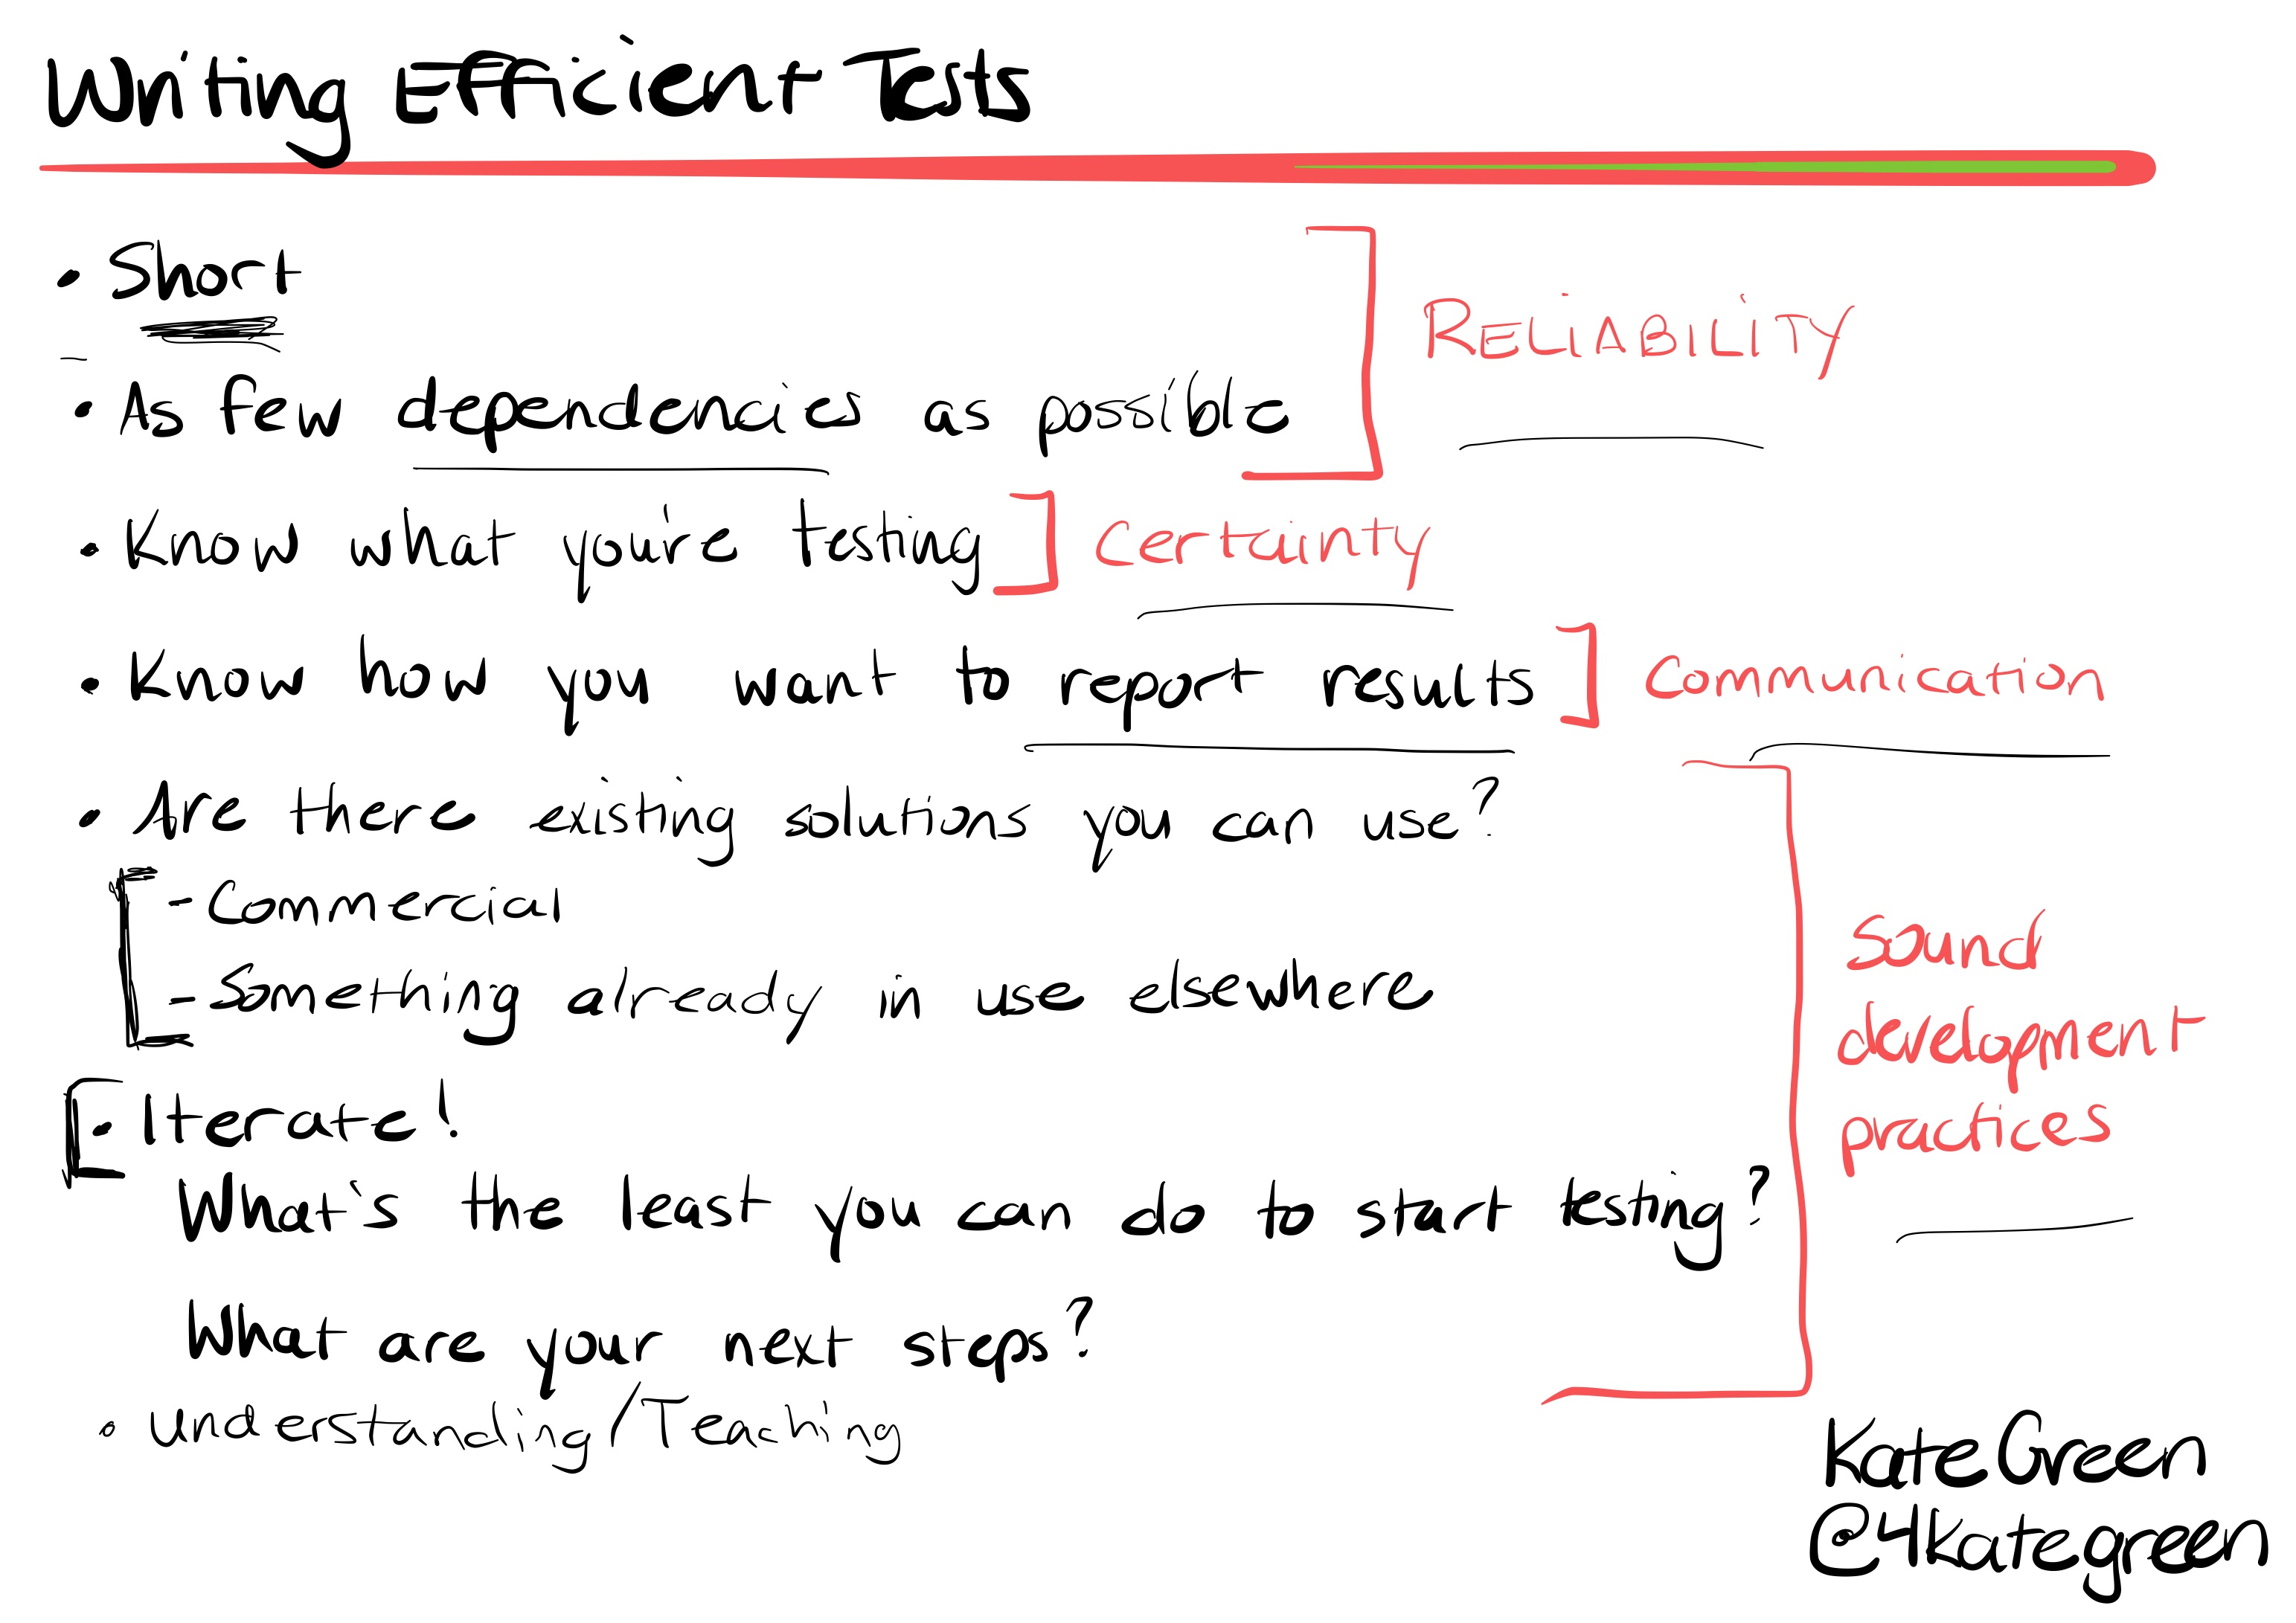 Writing Efficient Tests
• Short
• As few dependencies as possible
RELIABILITY
• Know what you're testing
Certainty
• Know how you want to report results
Communication
• Are there existing solutions you can use?
- Commercial
- Something already in use elsewhere
Sound
development
practices
• Iterate!
What's the least you can do to start testing?
What are your next steps?
• Understanding/Teaching
Kate Green
@41kategreen